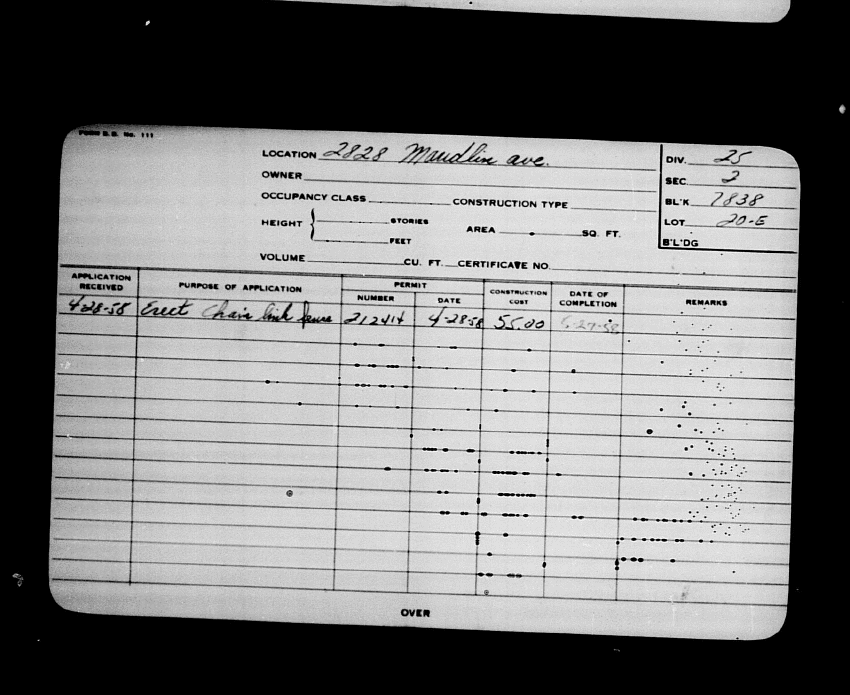 FORM B.B. No. 111
LOCATION 2828 Maudlin ave.
OWNER
OCCUPANCY CLASS CONSTRUCTION TYPE
HEIGHT STORIES
FEET
AREA SQ. FT.
VOLUME CU. FT. CERTIFICATE NO.
DIV. 25
SEC. 2
BL'K 7838
LOT 20-E
B'L'DG
APPLICATION RECEIVED PURPOSE OF APPLICATION PERMIT NUMBER DATE CONSTRUCTION COST DATE OF COMPLETION REMARKS
4-28-58 Erect Chain link fence 212414 4-28-58 55.00 5-27-58
OVER